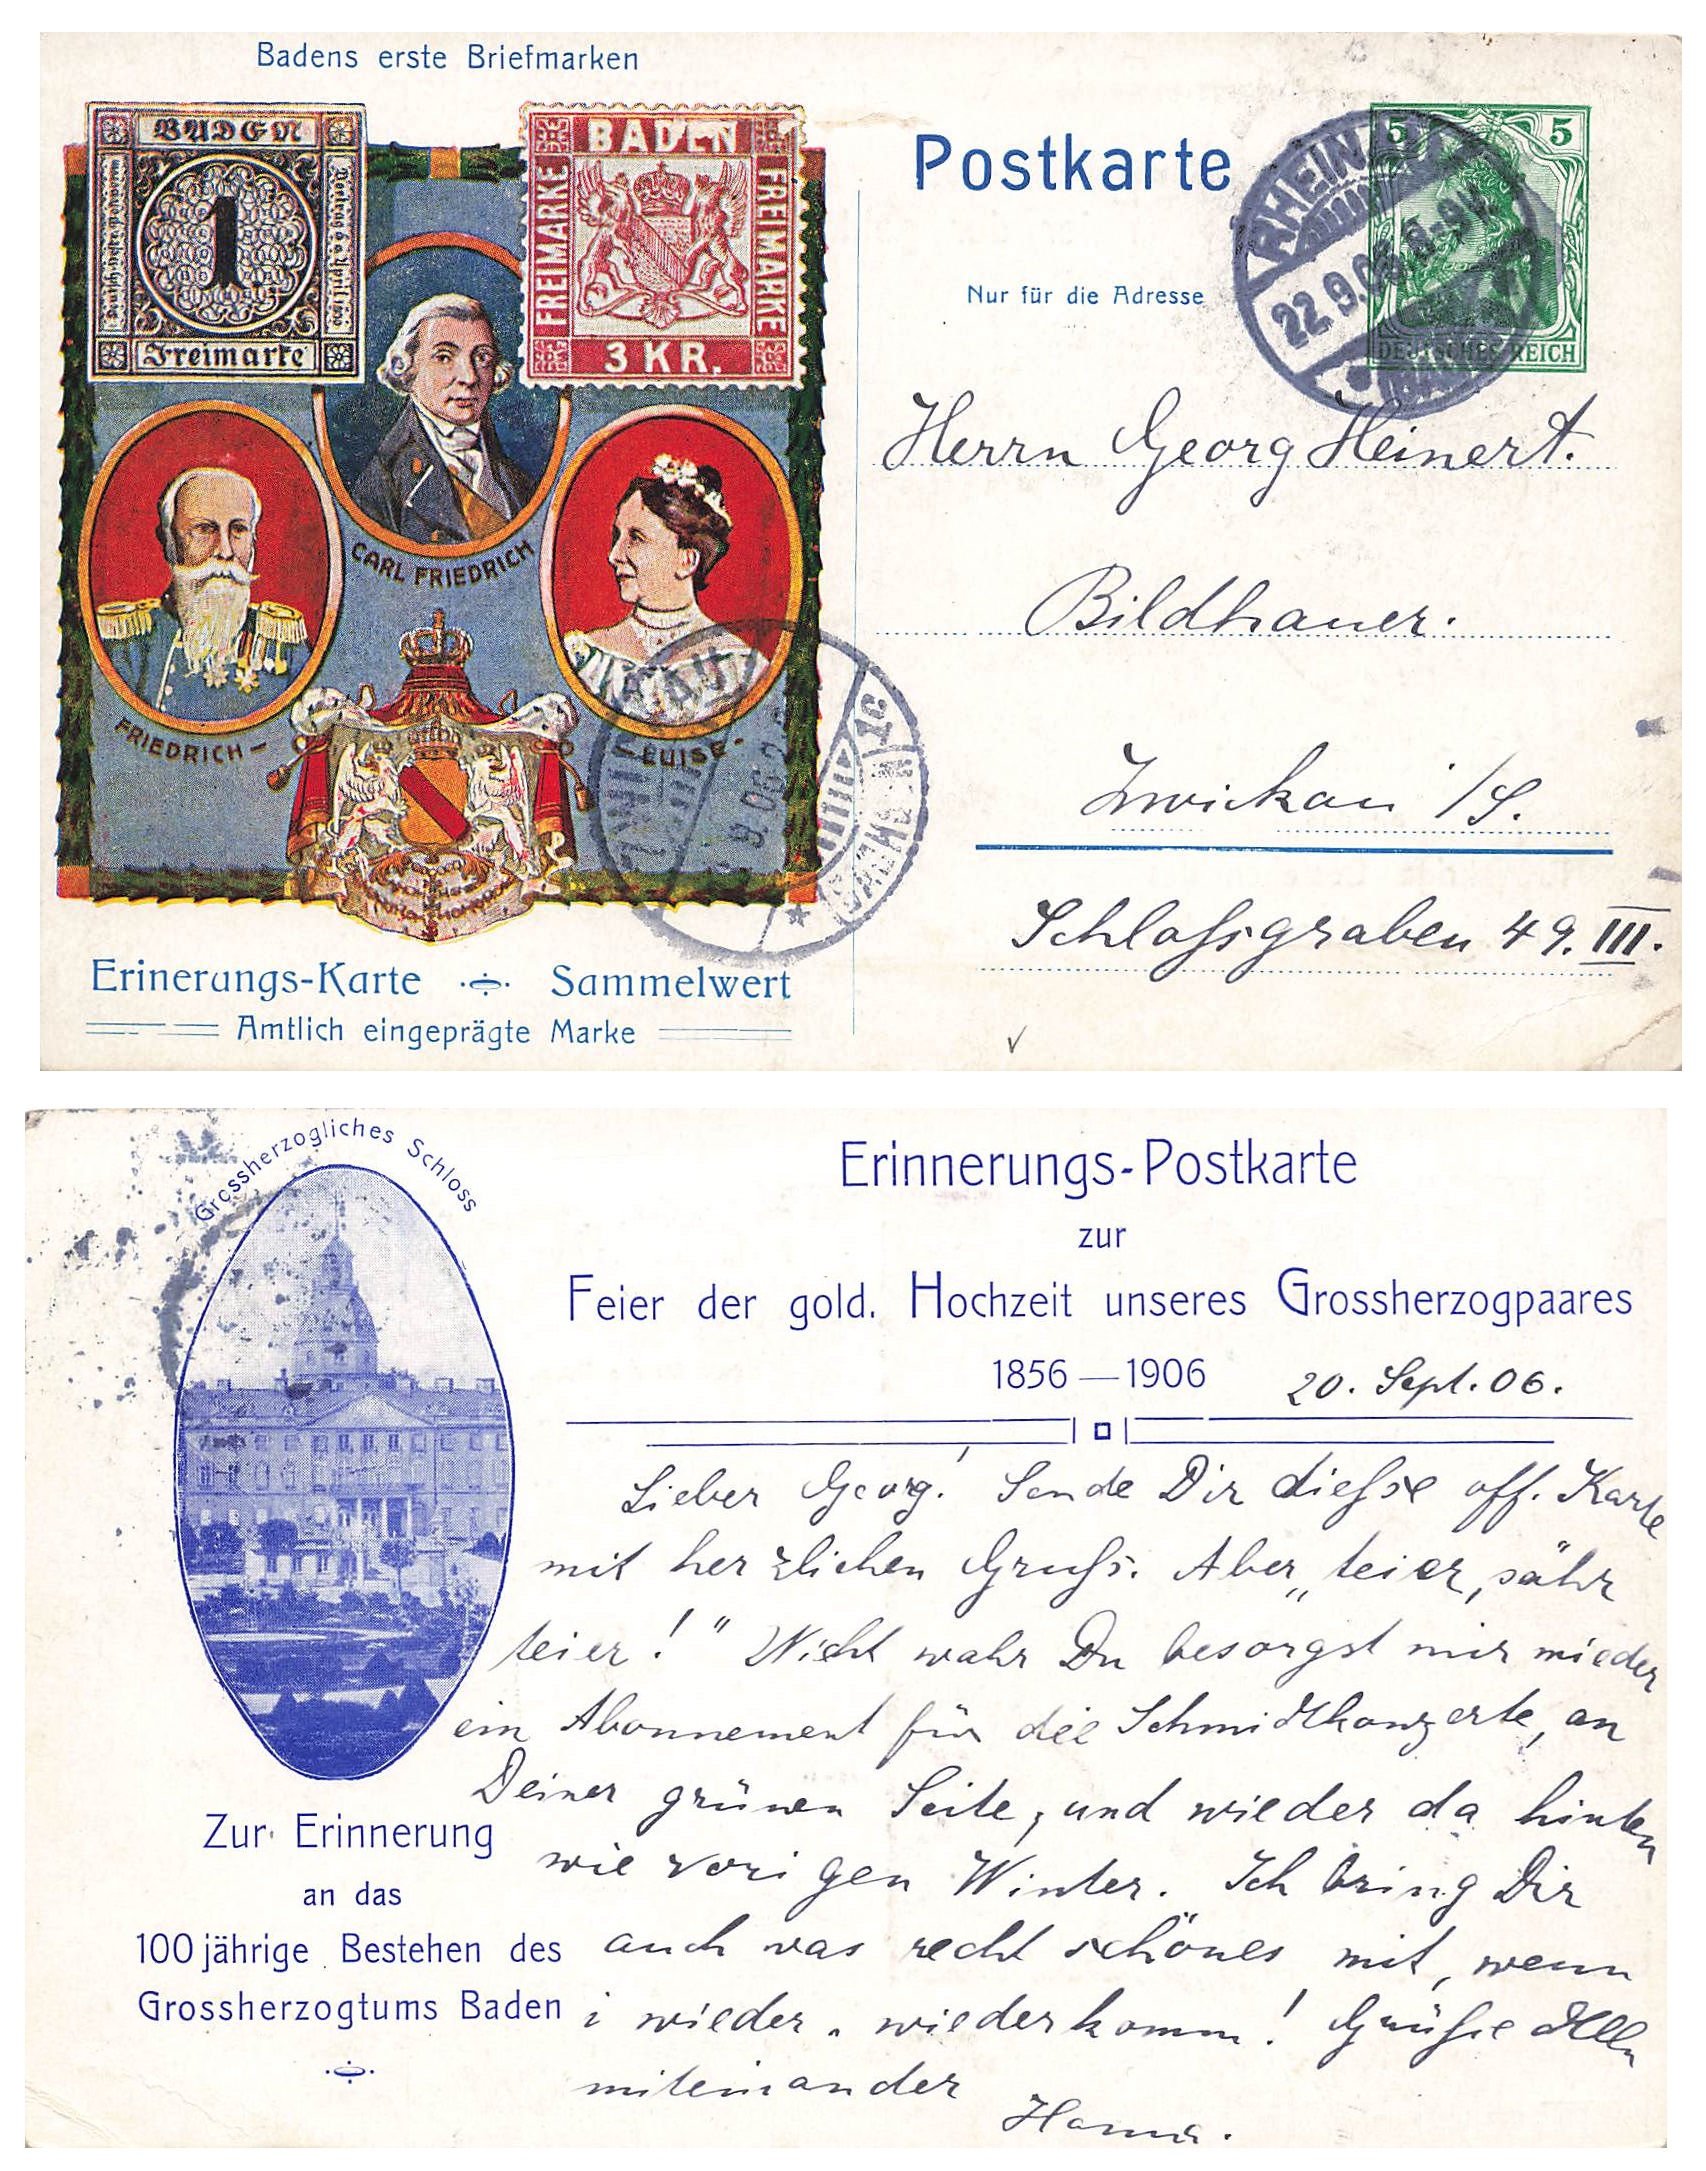 Badens erste Briefmarken
BADEN
1
Freimarke
BADEN
FREIMARKE
FREIMARKE
3 KR.
CARL FRIEDRICH
FRIEDRICH -
- LUISE -
Erinerungs-Karte Sammelwert
Amtlich eingeprägte Marke
Postkarte
Nur für die Adresse
5 5
DEUTSCHES REICH
22.9.06
Herrn Georg Heinert.
Bildhauer.
Zwickau i/S.
Schloßsgraben 49. III.
Grossherzogliches Schloss
Erinnerungs-Postkarte
zur
Feier der gold. Hochzeit unseres Grossherzogpaares
1856 — 1906 20. Sept. 06.
Lieber Georg! Sende Dir dieße off. Karte
mit herzlichen Gruß. Aber „teier, sähr
teier!" Nicht wahr Du besorgst mir wieder
ein Abonnement für die Schmidtkonzerte, an
Deiner grünen Seite, und wieder da hinten
wie vorigen Winter. Ich bring Dir
auch was recht schönes mit, wenn
i wieder wiederkomm! Grüße Alle
miteinander
Hanna.
Zur Erinnerung
an das
100jährige Bestehen des
Grossherzogtums Baden